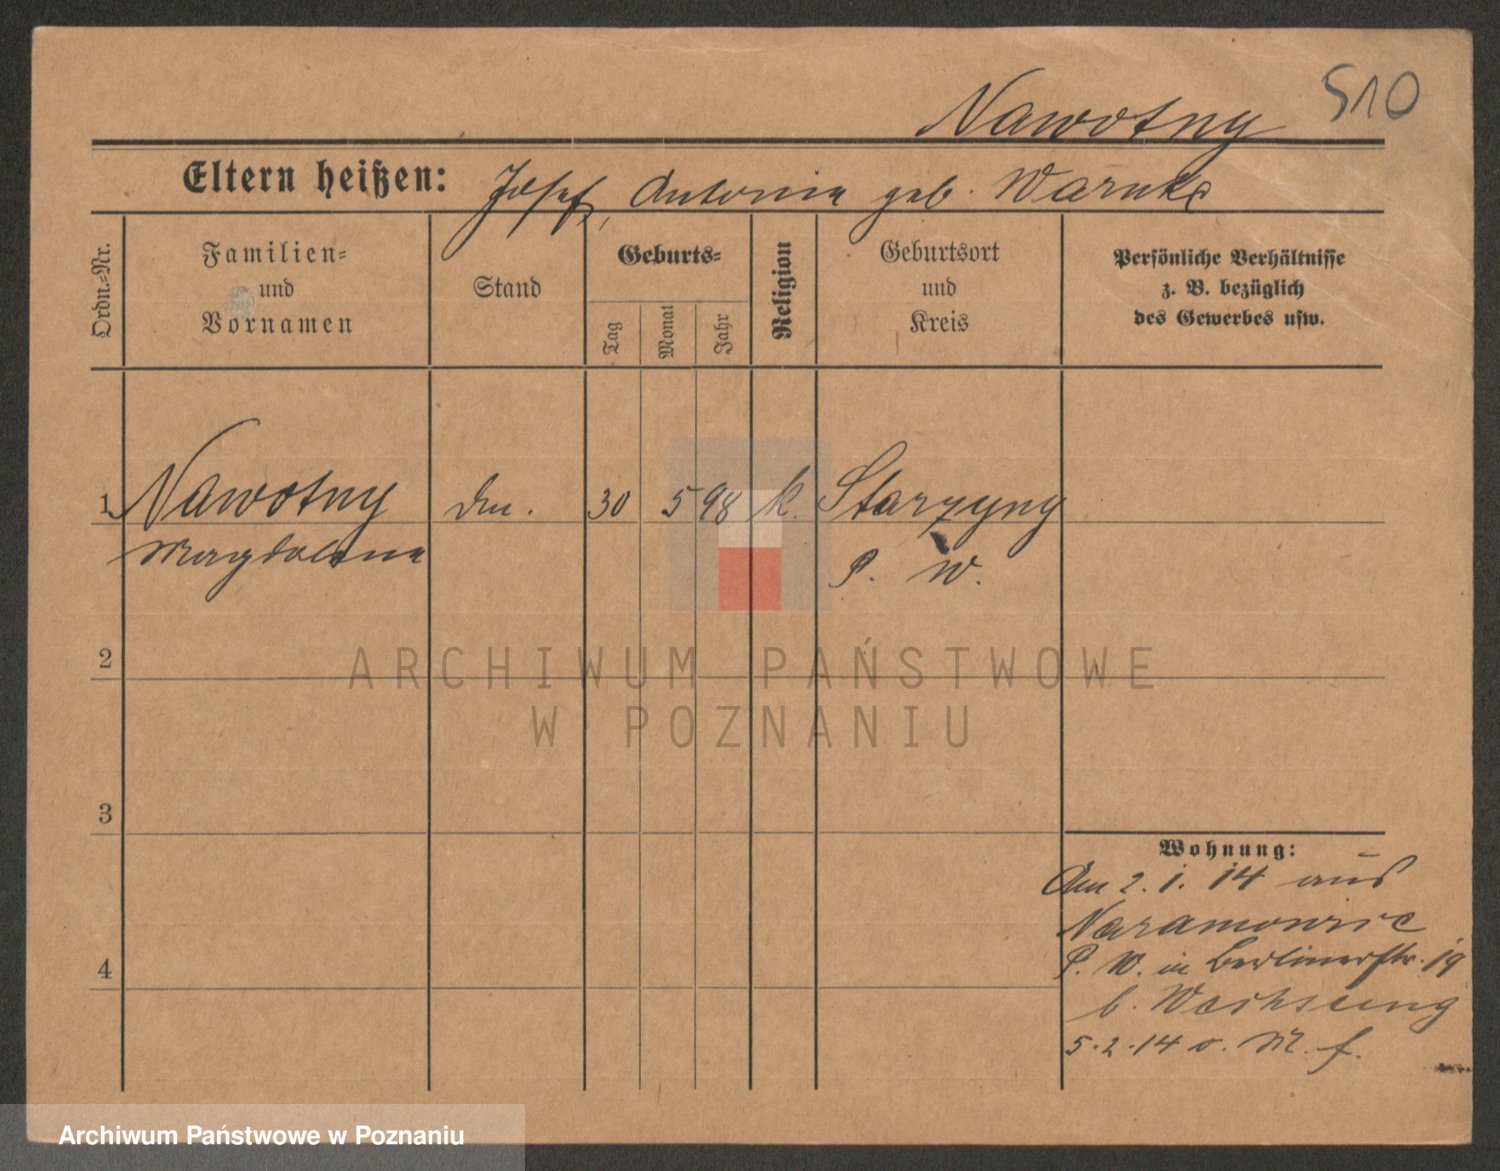 510
Nawotny
Eltern heißen: Josef, Antonina geb. Warnke
Ordn.-Nr.
Familien-
und
Vornamen
Stand
Geburts-
Tag
Monat
Jahr
Religion
Geburtsort
und
Kreis
Persönliche Verhältnisse
z. B. bezüglich
des Gewerbes usw.
1 Nawotny dm. 30 5 98 k. Starzyny
Magdalena P. W.
2
3
4
Wohnung:
Am 2. 1. 14 aus
Naramowic
P. W. in Berlinerstr. 19
b.
5.2.14 v. M. f.
ARCHIWUM PAŃSTWOWE
W POZNANIU
Archiwum Państwowe w Poznaniu